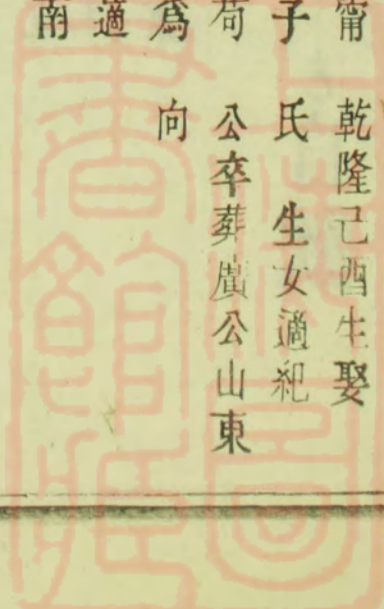 甯 乾隆己酉生娶
子 氏 生女適紀
公卒葬廣公山東
爲 向
適
南